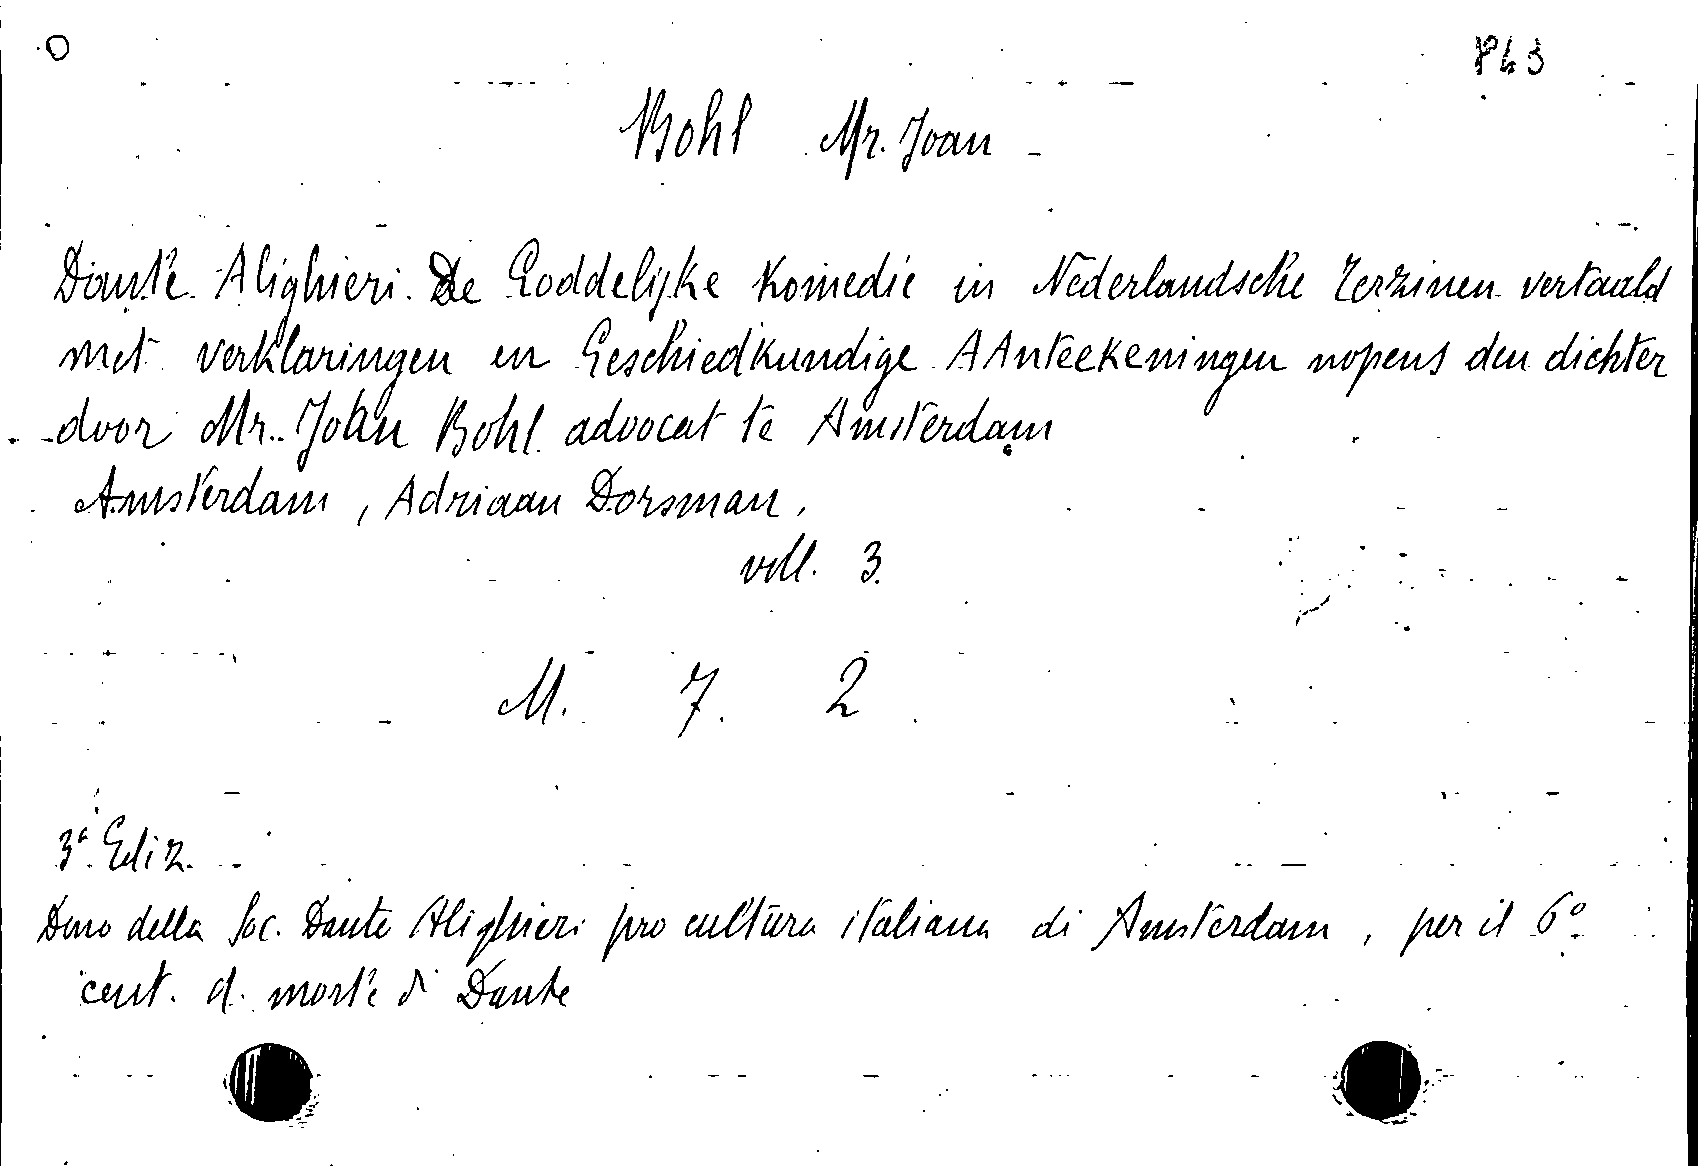 O 843
Bohl Mr. Joan
Dante Alighieri. De Goddelijke Komedie in Nederlandsche Terzinen vertaald
met verklaringen en Geschiedkundige AAnteekeningen nopens den dichter
door Mr. John Bohl advocat te Amsterdam
Amsterdam, Adriaan Dorsman,
voll. 3
M. 7. 2
3ª Ediz.
Dono della Soc. Dante Alighieri pro cultura italiana di Amsterdam, per il 6º
cent. d. morte di Dante